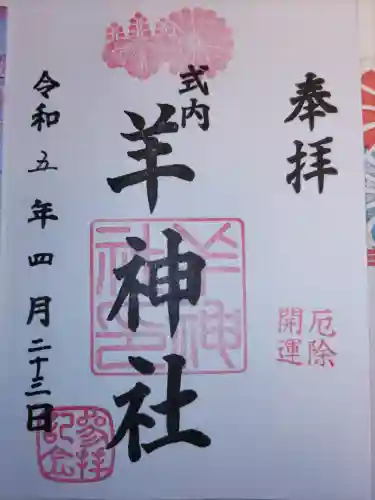 奉拝
厄除
開運
式内
羊神社
羊神社印
令和五年四月二十三日
参拝記念